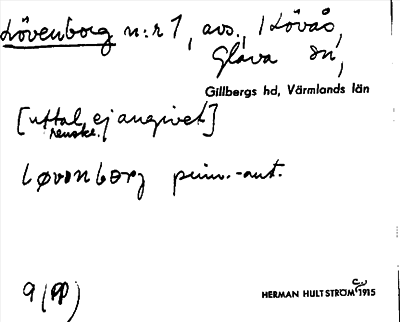 Lövenborg n:r 1, avs., i Lövås,
Glava sn,
Gillbergs hd, Värmlands län
[uttal ej angivet]
Løvenborg prim.-ant.
9 (pp)
HERMAN HULTSTRÖM 1915